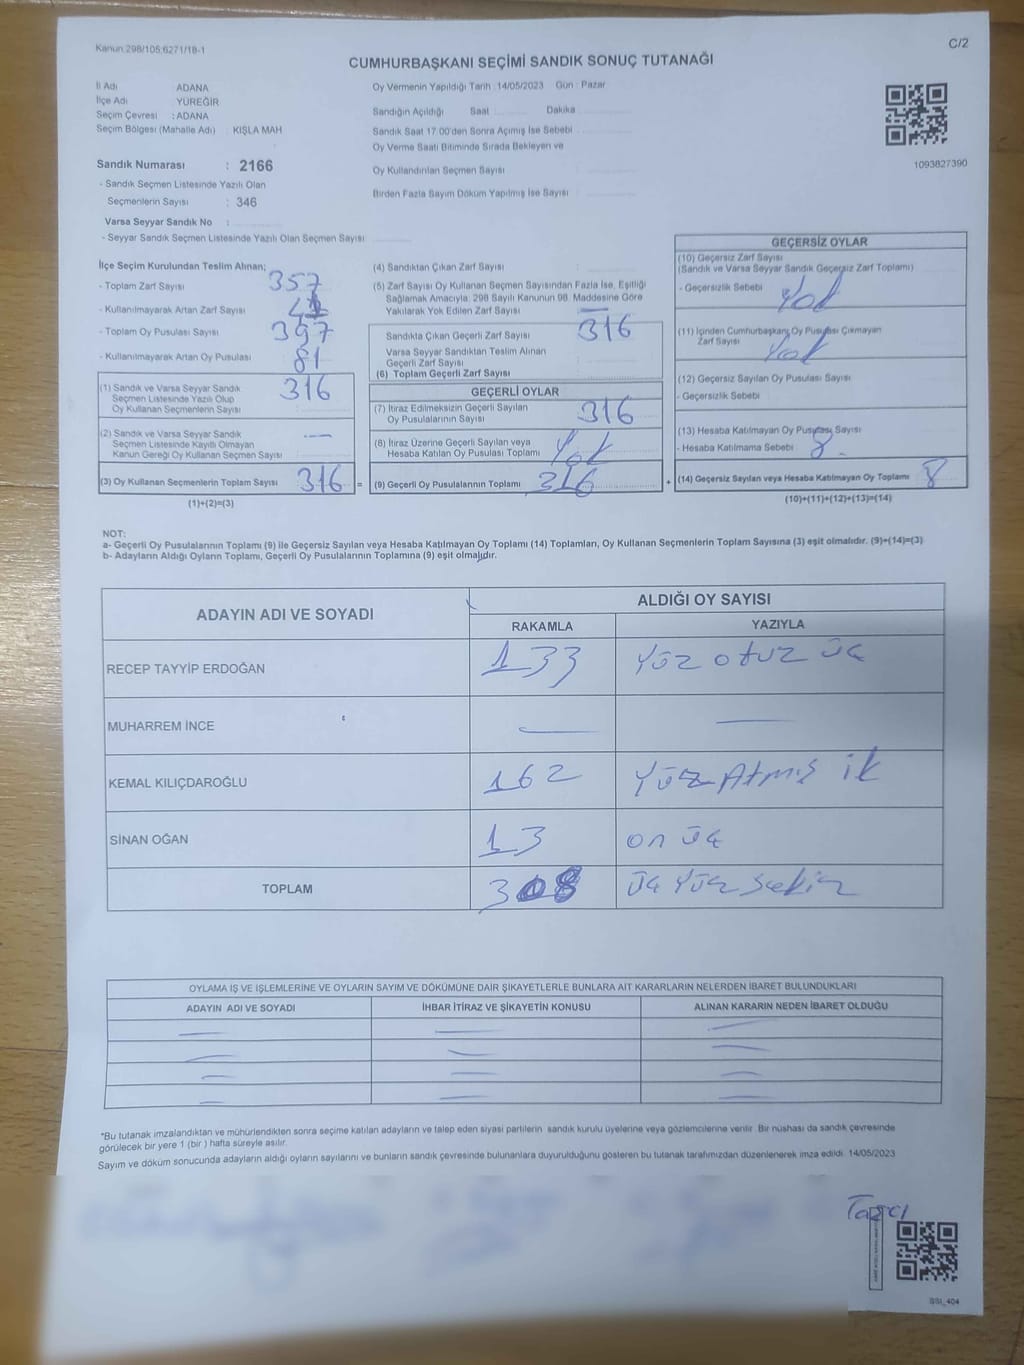 Kanun:298/105;6271/18-1
C/2
CUMHURBAŞKANI SEÇİMİ SANDIK SONUÇ TUTANAĞI
İl Adı ADANA
İlçe Adı YÜREĞİR
Seçim Çevresi : ADANA
Seçim Bölgesi (Mahalle Adı) : KIŞLA MAH
Sandık Numarası : 2166
- Sandık Seçmen Listesinde Yazılı Olan
Seçmenlerin Sayısı : 346
Varsa Seyyar Sandık No :
- Seyyar Sandık Seçmen Listesinde Yazılı Olan Seçmen Sayısı
Oy Vermenin Yapıldığı Tarih :14/05/2023 Gün : Pazar
Sandığın Açıldığı Saat Dakika
Sandık Saat 17.00'den Sonra Açılmış İse Sebebi
Oy Verme Saati Bitiminde Sırada Bekleyen ve
Oy Kullandırılan Seçmen Sayısı
Birden Fazla Sayım Döküm Yapılmış İse Sayısı
1093827390
İlçe Seçim Kurulundan Teslim Alınan;
- Toplam Zarf Sayısı 357
- Kullanılmayarak Artan Zarf Sayısı
- Toplam Oy Pusulası Sayısı 397
- Kullanılmayarak Artan Oy Pusulası 81
(1) Sandık ve Varsa Seyyar Sandık 316
Seçmen Listesinde Yazılı Olup
Oy Kullanan Seçmenlerin Sayısı :
(2) Sandık ve Varsa Seyyar Sandık —
Seçmen Listesinde Kayıtlı Olmayan
Kanun Gereği Oy Kullanan Seçmen Sayısı
(3) Oy Kullanan Seçmenlerin Toplam Sayısı 316 =
(1)+(2)=(3)
(4) Sandıktan Çıkan Zarf Sayısı :
(5) Zarf Sayısı Oy Kullanan Seçmen Sayısından Fazla İse, Eşitliği
Sağlamak Amacıyla: 298 Sayılı Kanunun 98. Maddesine Göre
Yakılarak Yok Edilen Zarf Sayısı —
Sandıkta Çıkan Geçerli Zarf Sayısı 316
Varsa Seyyar Sandıktan Teslim Alınan
Geçerli Zarf Sayısı
(6) Toplam Geçerli Zarf Sayısı
GEÇERLİ OYLAR
(7) İtiraz Edilmeksizin Geçerli Sayılan 316
Oy Pusulalarının Sayısı
(8) İtiraz Üzerine Geçerli Sayılan veya Yok
Hesaba Katılan Oy Pusulası Toplamı
(9) Geçerli Oy Pusulalarının Toplamı 316 +
GEÇERSİZ OYLAR
(10) Geçersiz Zarf Sayısı
(Sandık ve Varsa Seyyar Sandık Geçersiz Zarf Toplamı)
- Geçersizlik Sebebi Yok
(11) İçinden Cumhurbaşkanı Oy Pusulası Çıkmayan
Zarf Sayısı Yok
(12) Geçersiz Sayılan Oy Pusulası Sayısı
- Geçersizlik Sebebi
(13) Hesaba Katılmayan Oy Pusulası Sayısı
- Hesaba Katılmama Sebebi 8
(14) Geçersiz Sayılan veya Hesaba Katılmayan Oy Toplamı 8
(10)+(11)+(12)+(13)=(14)
NOT:
a- Geçerli Oy Pusulalarının Toplamı (9) ile Geçersiz Sayılan veya Hesaba Katılmayan Oy Toplamı (14) Toplamları, Oy Kullanan Seçmenlerin Toplam Sayısına (3) eşit olmalıdır. (9)+(14)=(3)
b- Adayların Aldığı Oyların Toplamı, Geçerli Oy Pusulalarının Toplamına (9) eşit olmalıdır.
ADAYIN ADI VE SOYADI
ALDIĞI OY SAYISI
RAKAMLA YAZIYLA
RECEP TAYYİP ERDOĞAN 133 Yüz otuz üç
MUHARREM İNCE — —
KEMAL KILIÇDAROĞLU 162 Yüz Atmış ik
SİNAN OĞAN 13 on üç
TOPLAM 308 üç Yüz sekiz
OYLAMA İŞ VE İŞLEMLERİNE VE OYLARIN SAYIM VE DÖKÜMÜNE DAİR ŞİKAYETLERLE BUNLARA AİT KARARLARIN NELERDEN İBARET BULUNDUKLARI
ADAYIN ADI VE SOYADI İHBAR İTİRAZ VE ŞİKAYETİN KONUSU ALINAN KARARIN NEDEN İBARET OLDUĞU
*Bu tutanak imzalandıktan ve mühürlendikten sonra seçime katılan adayların ve talep eden siyasi partilerin sandık kurulu üyelerine veya gözlemcilerine verilir. Bir nüshası da sandık çevresinde
görülecek bir yere 1 (bir ) hafta süreyle asılır.
Sayım ve döküm sonucunda adayların aldığı oyların sayılarını ve bunların sandık çevresinde bulunanlara duyurulduğunu gösteren bu tutanak tarafımızdan düzenlenerek imza edildi. 14/05/2023
SSI_404